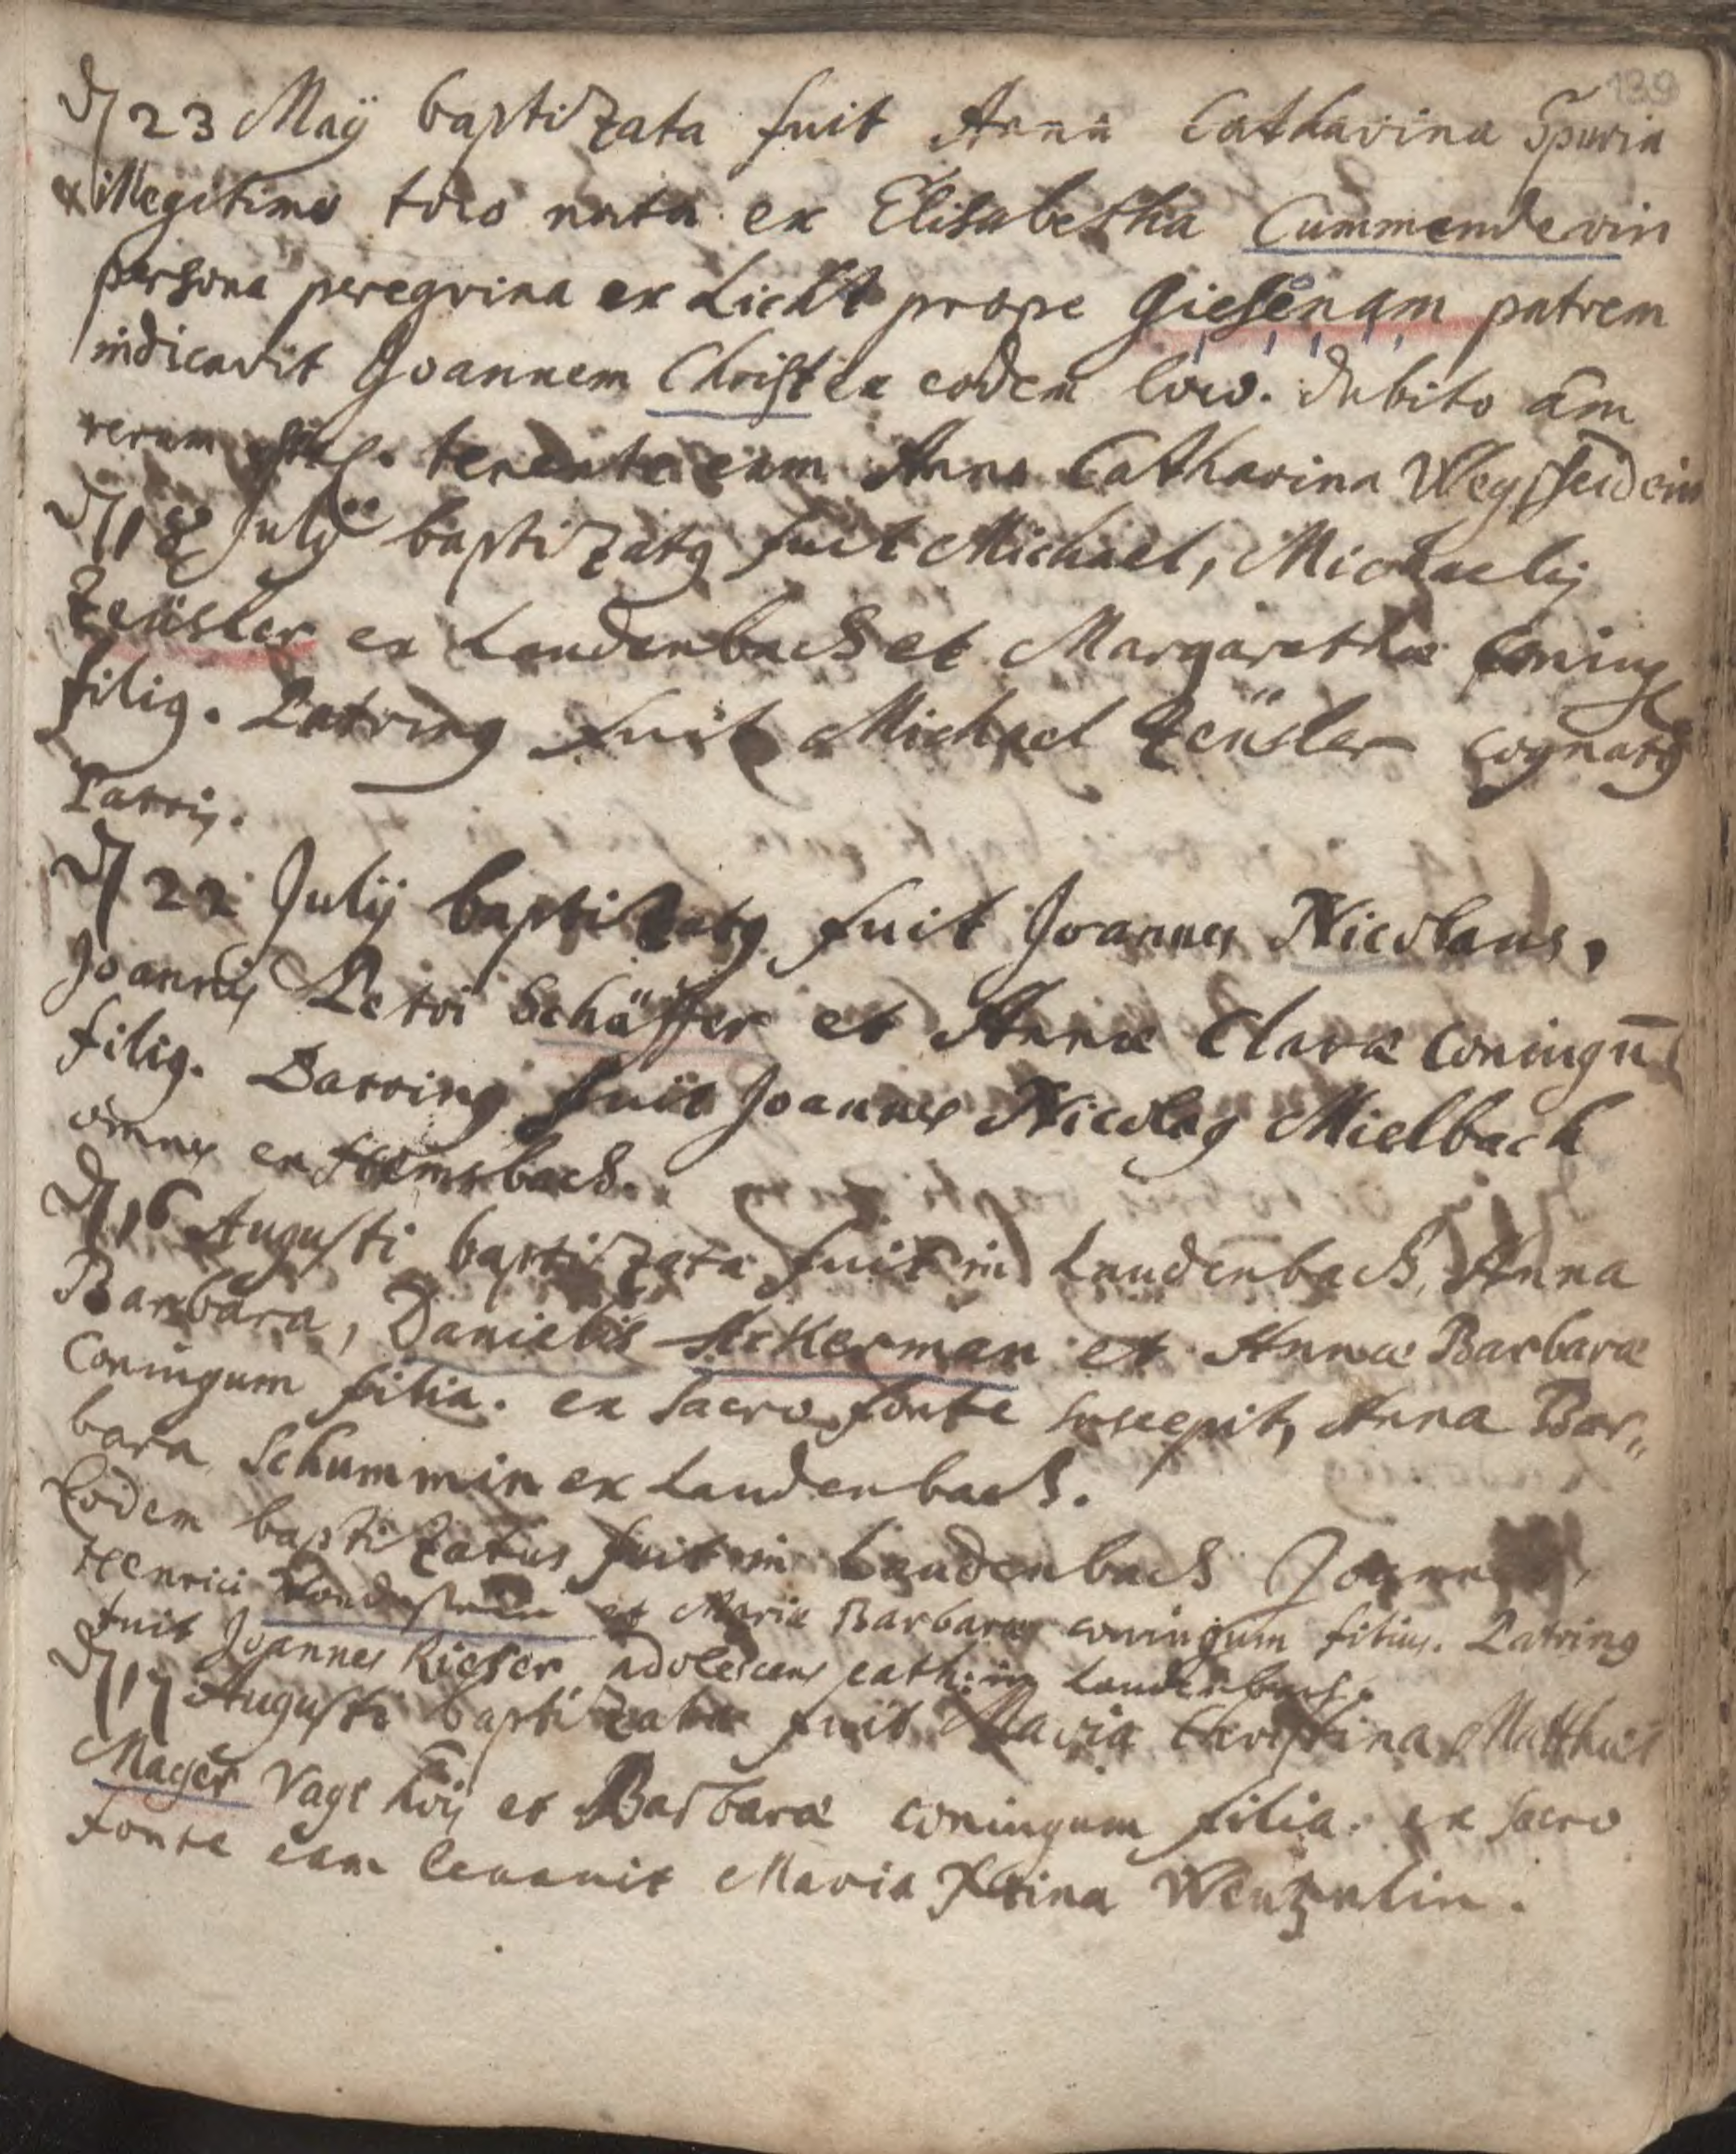 139
D 23 Maÿ baptizata fuit Anna Catharina Spuria
ex illegitimo toro nata ex Elisabetha Cummenderin
persona peregrina ex Licht prope Giesenam patrem
indicavit Joannem Christ ex eodem loco. dubito am
verum sit. tenente eam Anna Catharina
D 18 Julÿ baptizatg fuit Michael, Michaelis
Zeüsler ex Laudenbach et Margarethæ coning
filig. Patring fuit Michael Zeüsler cognatg
Patris.
D 22 Julÿ baptizatg fuit Joannes Nicolaus,
Joannis Petri Schäffer et Annæ Claræ coningū
filig. Patring fuit Joannes Nicolag Mielbach
omnes ex Hemsbach.
D 16 Augusti baptizata fuit in Laudenbach, Anna
Barbara, Danielis Ackerman et Annæ Barbaræ
Coningum filia. ex sacro fonte suscepit, Anna Bar„
bara Schummin ex Laudenbach.
Eodem baptizatus fuit in Laudenbach Joannes,
Henrici et Mariæ Barbaræ coningum filius. Patring
fuit Joannes Rieser adolescens cath: in Laudenbach.
D 17 Augusti baptizata fuit Maria Christina Matthæi
Mager Vagi et Barbaræ coningum filia. ex sacro
fonte eam levavit Maria Xtina Wentzelin.